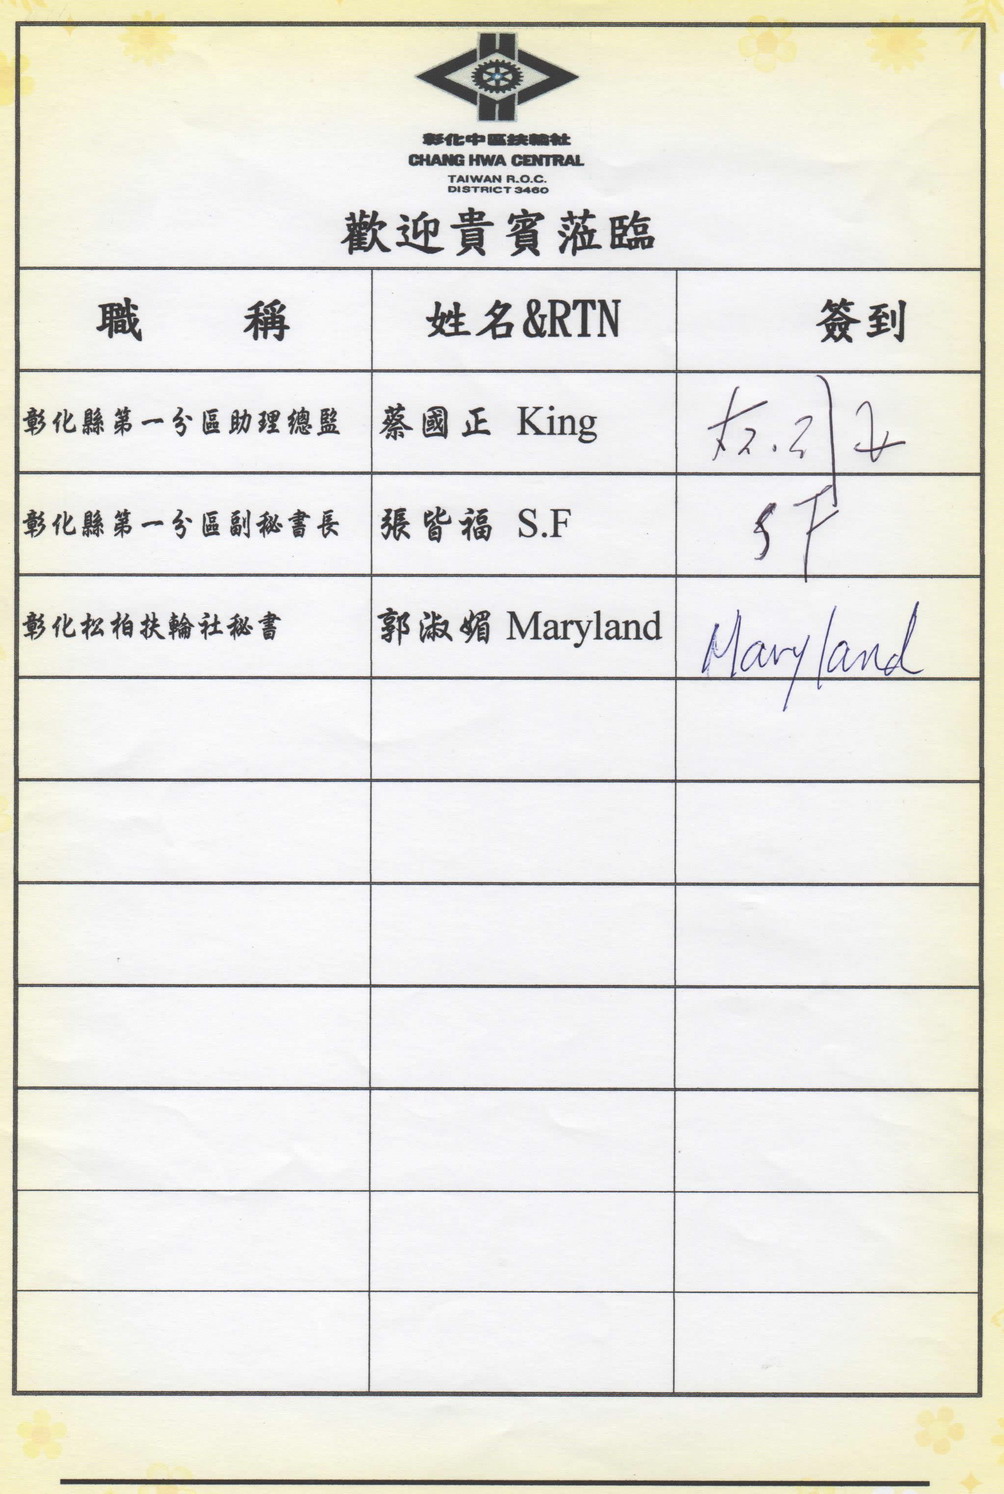 彰化中區扶輪社
CHANG HWA CENTRAL
TAIWAN R.O.C.
DISTRICT 3460
歡迎貴賓蒞臨
職 稱 姓名&RTN 簽到
彰化縣第一分區助理總監 蔡國正 King
彰化縣第一分區副秘書長 張皆福 S.F SF
彰化松柏扶輪社秘書 郭淑媚 Maryland Maryland